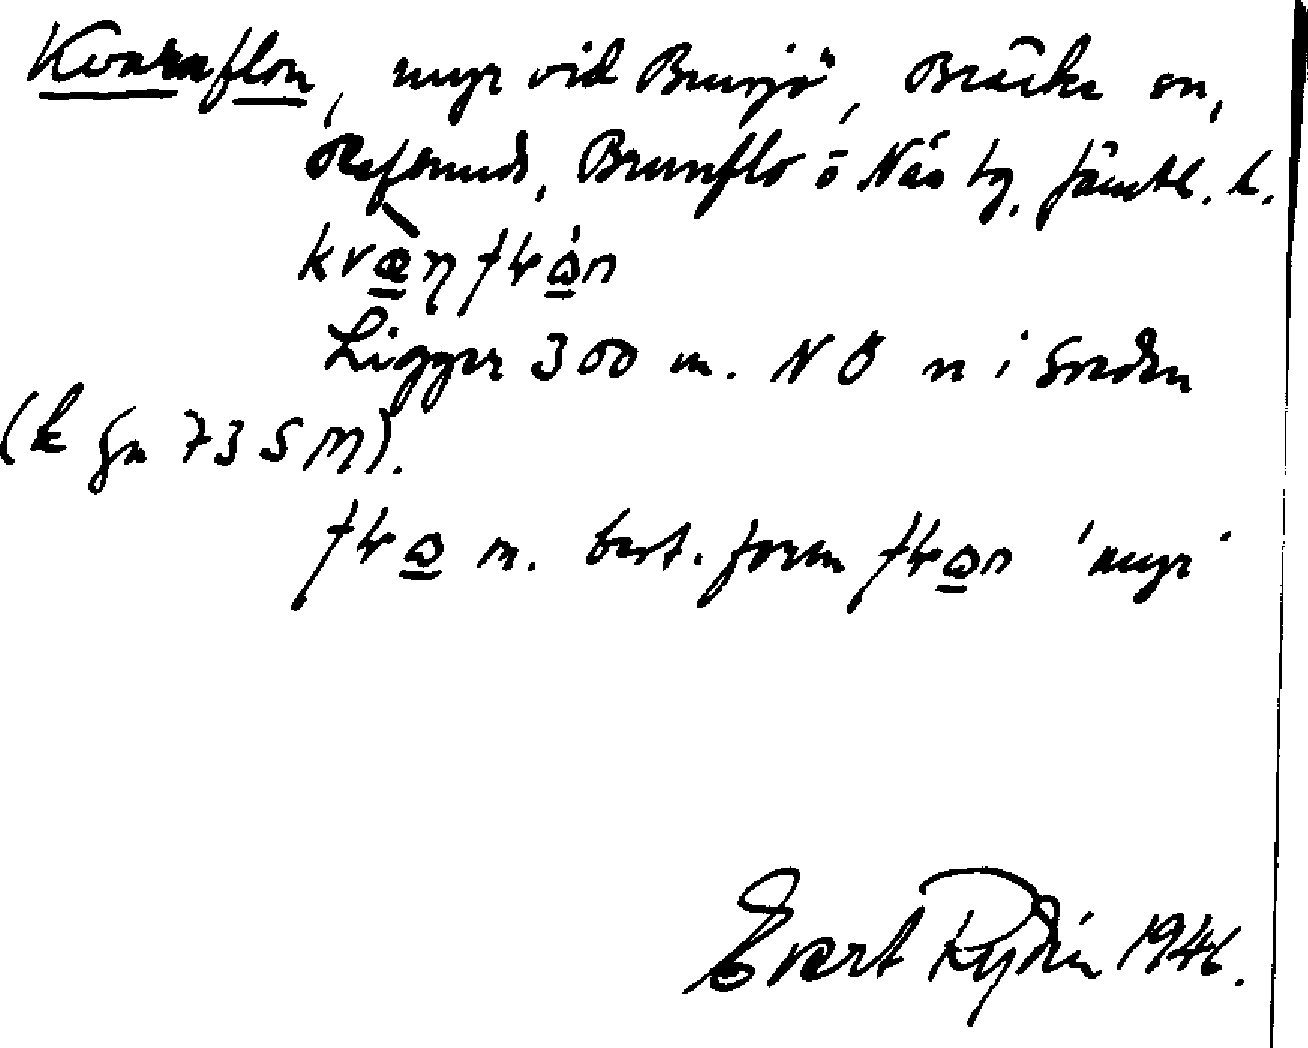 Kvarnflon, myr vid Brunsjö, Bräcke sn,
Refsunds, Brunflo o Näs tg, Jämtl. l.
kvæ̀ɳ fɽɷ́n
Ligger 300 m. N Ö n i Sveden
(k gn 73 S M).
fɽɷ n. best. form fɽɷn 'myr'
Evert Rydén 1946.